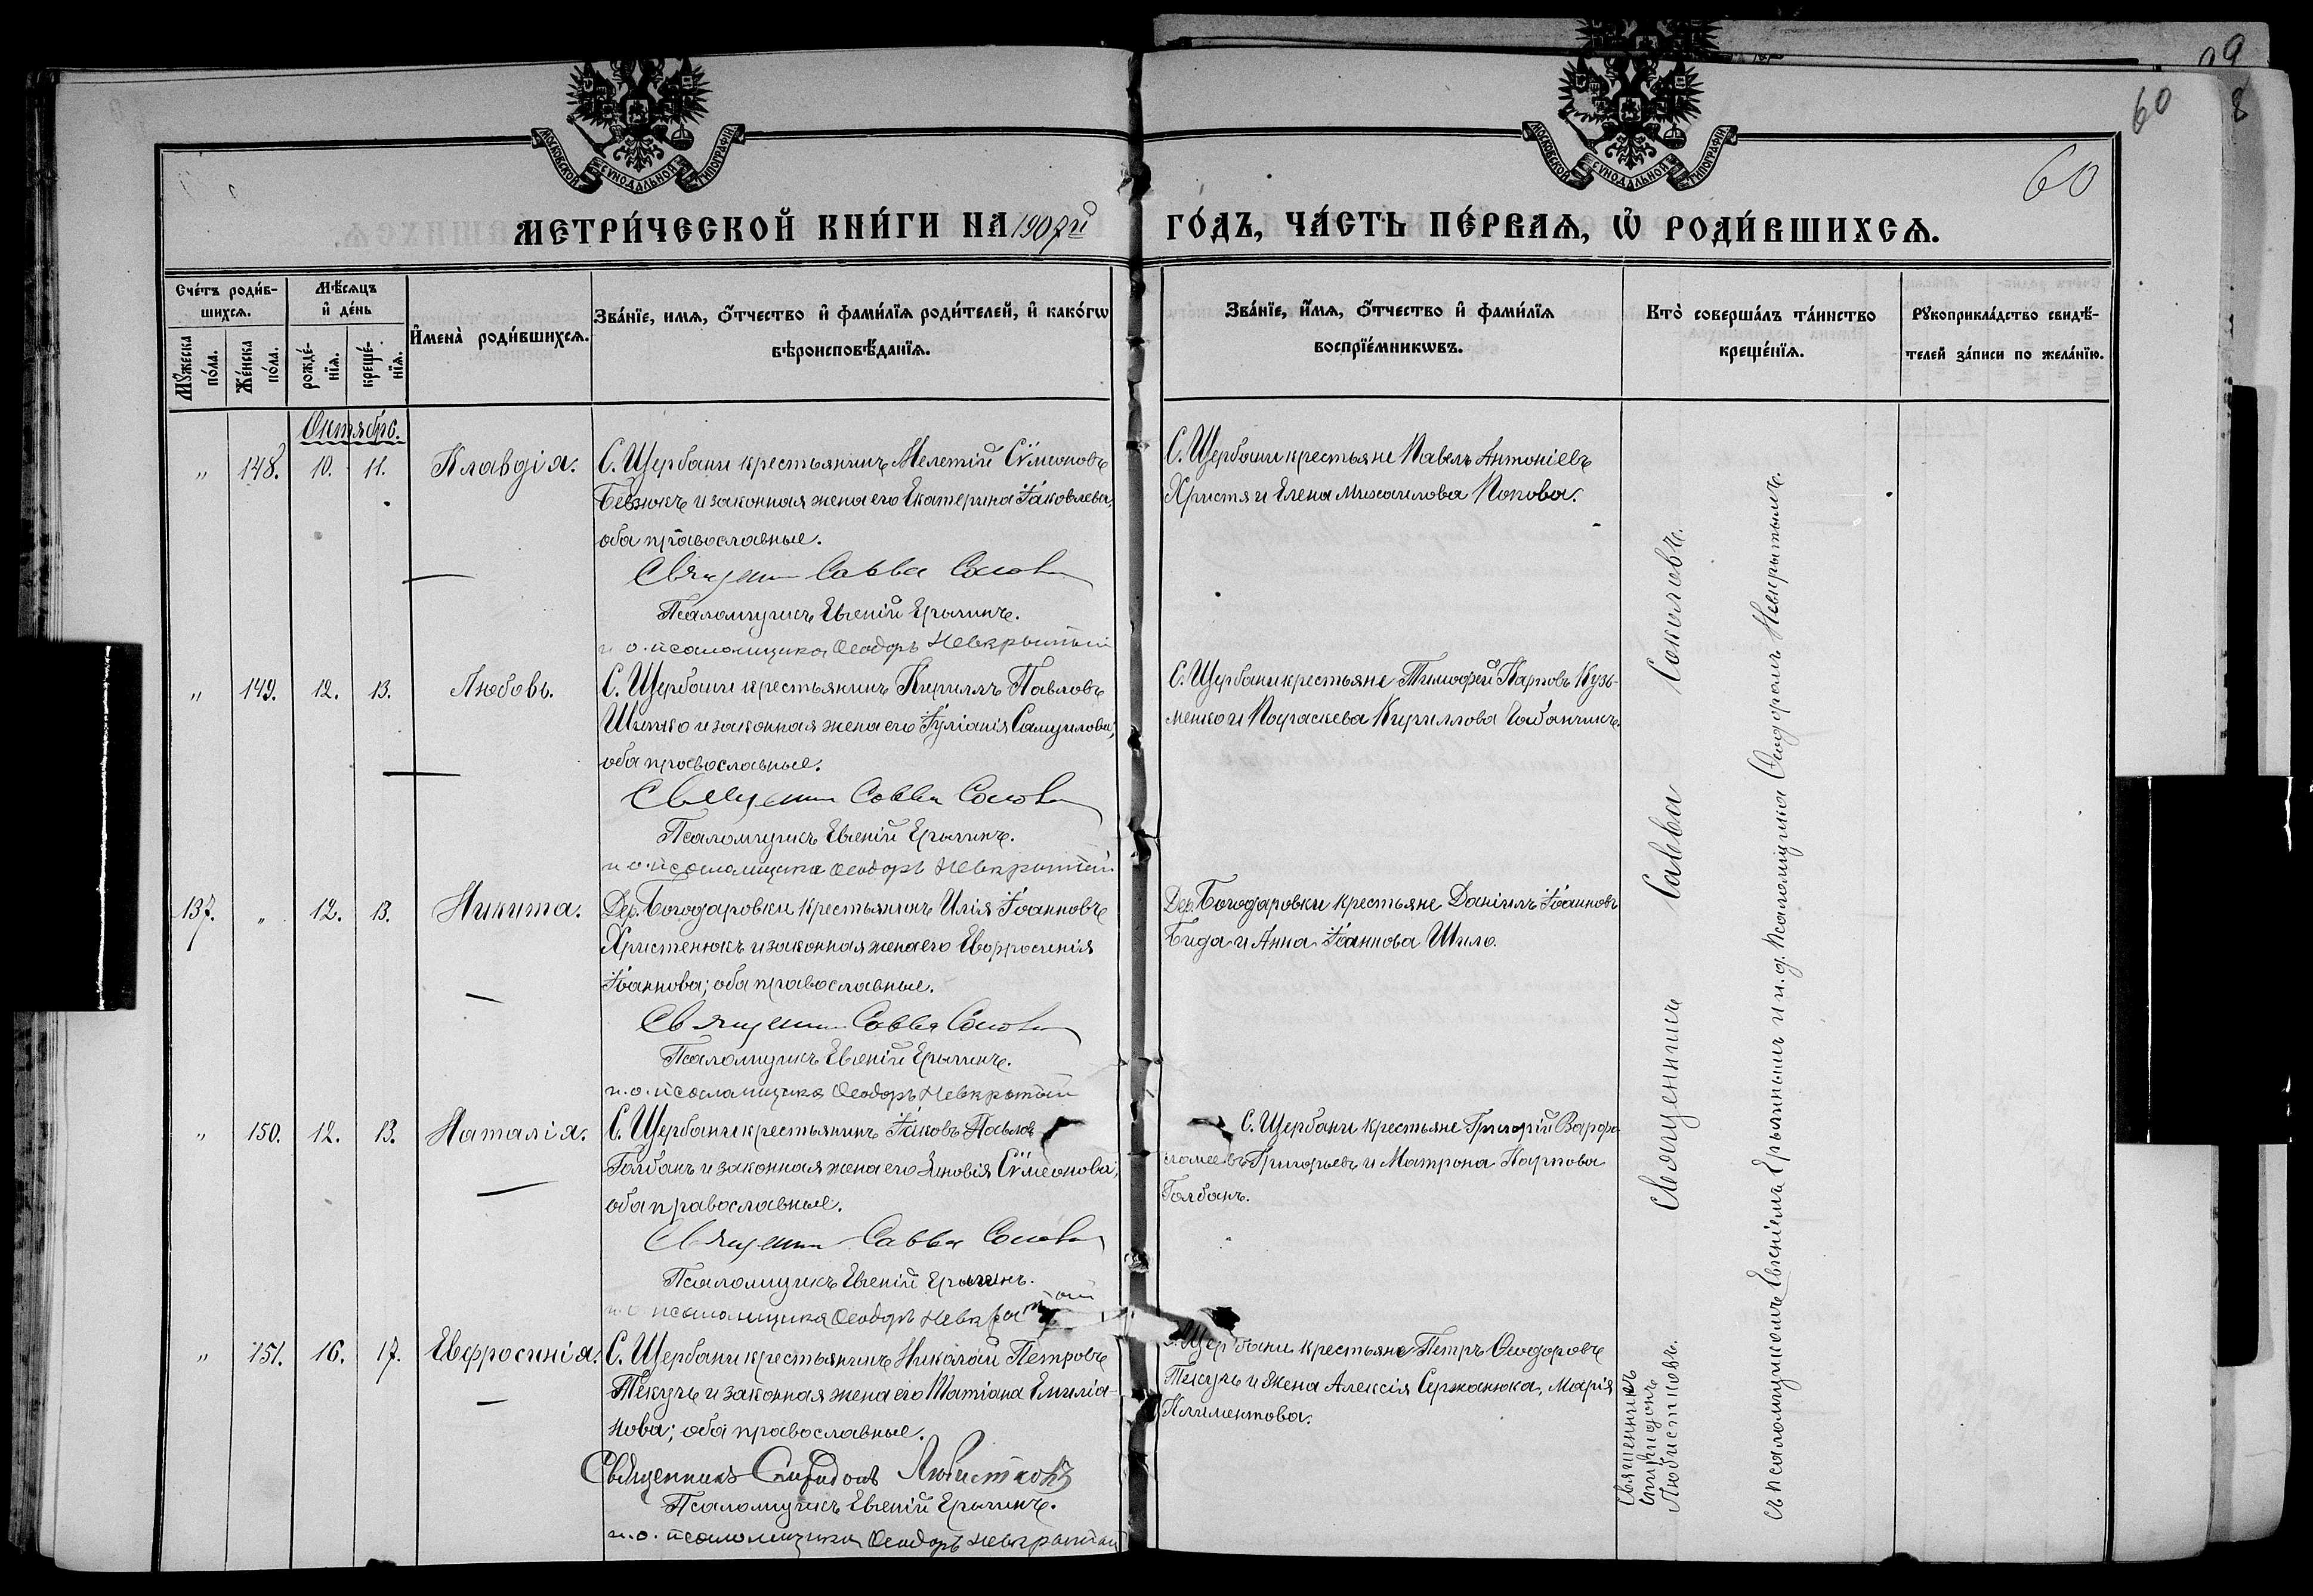 99
60
8
60
МОСКОВСКОЙ СѴНОДАЛЬНОЙ ТИПОГРАФІИ
МОСКОВСКОЙ СѴНОДАЛЬНОЙ ТИПОГРАФІИ
МЕТРИ́ЧЕСКОЙ КНИ́ГИ НА 1907й ГО́ДЪ, ЧА́СТЬ ПЕ́РВАѦ, Ѡ҆ РОДИ́ВШИХСѦ.
Сче́тъ роди́в-
шихсѧ.
Мꙋ́жеска по́ла.
Же́нска по́ла.
Мѣ́сѧцъ
и҆ де́нь
рожде́-
нїѧ.
креще́-
нїѧ.
И҆мена̀ роди́вшихсѧ.
Зва́нїе, имѧ, ѻ҆́тчество и҆ фами́лїѧ роди́телей, и҆ како́гѡ
вѣроисповѣ́данїѧ.
Зва́нїе, и҆́мѧ, ѻ҆́тчество и҆ фами́лїѧ
воспрїе́мникѡвъ.
Кто̀ соверша́лъ та́инство
креще́нїѧ.
Рꙋкоприкла́дство свидѣ́-
телей за́писи по жела́нїю.
Октябрь.
„ 148. 10. 11. Клавдія.
С. Щербани крестьянинъ Мелетій Сѵмеоновъ
Бевзюкъ и законная жена его Екатерина Іаковлева,
оба православные.
Священникъ Савва Соколовъ
Псаломщикъ Евгеній Ерыгинъ.
и о. псаломщика Ѳеодоръ Невкрытый
С. Щербани крестьяне Павелъ Антоніевъ
Христя и Елена Михаилова Попова.
„ 149. 12. 13. Любовь.
С. Щербани крестьянинъ Кириллъ Павловъ
Шишко и законная жена его Іуліанія Самуилова,
оба православные.
Священникъ Савва Соколовъ
Псаломщикъ Евгеній Ерыгинъ.
и о. псаломщика Ѳеодоръ Невкрытый
С. Щербани крестьяне Тимоѳей Карповъ Кузь-
менко и Параскева Кириллова
137. „ 12. 13. Никита.
Дер. Богодаровки крестьянинъ Илія Іоанновъ
Христенюкъ и законная жена его Евфросинія
Іоаннова; оба православные.
Священникъ Савва Соколовъ
Псаломщикъ Евгеній Ерыгинъ.
и. о. псаломщика Ѳеодоръ Невкрытый
Дер. Богодаровки крестьяне Даніилъ Іоанновъ
Бида и Анна Іоаннова Шило.
„ 150. 12. 13. Наталія.
С. Щербани крестьянинъ Іаковъ Павловъ
Голбанъ и законная жена его Зиновія Сѵмеонова;
оба православные.
Священникъ Савва Соколовъ
Псаломщикъ Евгеній Ерыгинъ.
и. о псаломщика Ѳеодоръ Невкрытый
С. Щербани крестьяне Григорій Варфо
ломеевъ Григорьевъ и Матрона Карпова
Голбанъ.
„ 151. 16. 17. Евфросинія.
С. Щербани крестьянинъ Николай Петровъ
Текучъ и законная жена его Татіана Емиліа-
нова; оба православные.
Священникъ Спиридонъ Любистковъ
Псаломщикъ Евгеній Ерыгинъ.
и. о. псаломщика Ѳеодоръ Невкрытый
С. Щербани крестьяне Петръ Ѳеодоровъ
Текучъ и жена Алексія Сержанюка, Марія
Климентова.
Священникъ Савва Соколовъ.
Священникъ
Спиридонъ
Любистковъ.
съ псаломщикомъ Евгеніемъ Ерыгинымъ и и. д. псаломщика Ѳеодоромъ Невкрытымъ.